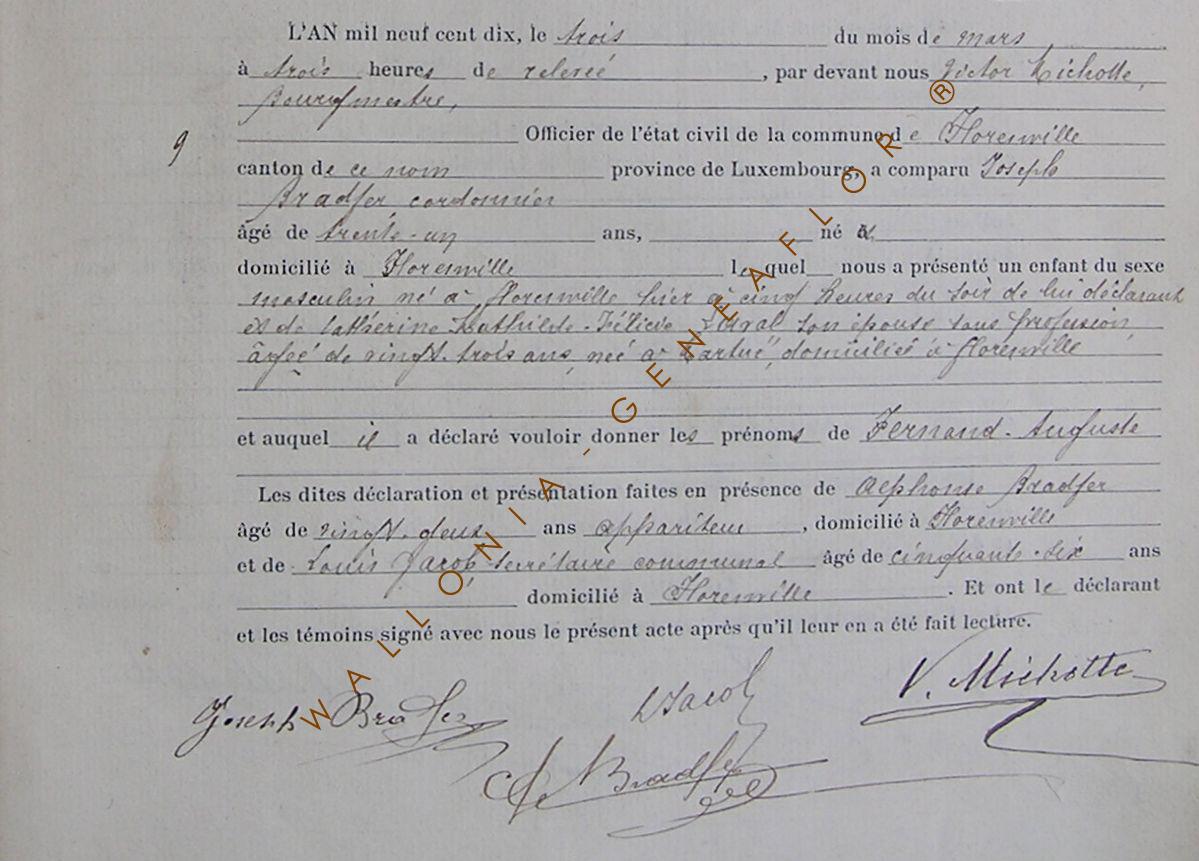 L'AN mil neuf cent dix, le trois du mois de mars
à trois heures de relevée, par devant nous Victor Michotte,
Bourgmestre,
9 Officier de l'état civil de la commune de Florenville
canton de ce nom province de Luxembourg, a comparu Joseph
Bradfer cordonnier
âgé de trente-un ans, né à
domicilié à Florenville lequel nous a présenté un enfant du sexe
masculin né à Florenville hier à cinq heures du soir de lui déclarant
et de Catherine Mathilde Félicie son épouse sans profession
âgée de vingt-trois ans, née à domiciliée à Florenville
et auquel il a déclaré vouloir donner les prénoms de Fernand-Auguste
Les dites déclaration et présentation faites en présence de Alphonse Bradfer
âgé de vingt-deux ans appariteur, domicilié à Florenville
et de Louis Jacob secrétaire communal âgé de cinquante-six ans
domicilié à Florenville. Et ont le déclarant
et les témoins signé avec nous le présent acte après qu'il leur en a été fait lecture.
Joseph Bradfer LJacob V. Michotte
Bradfer
WALLONIA-GENEAFLOR®